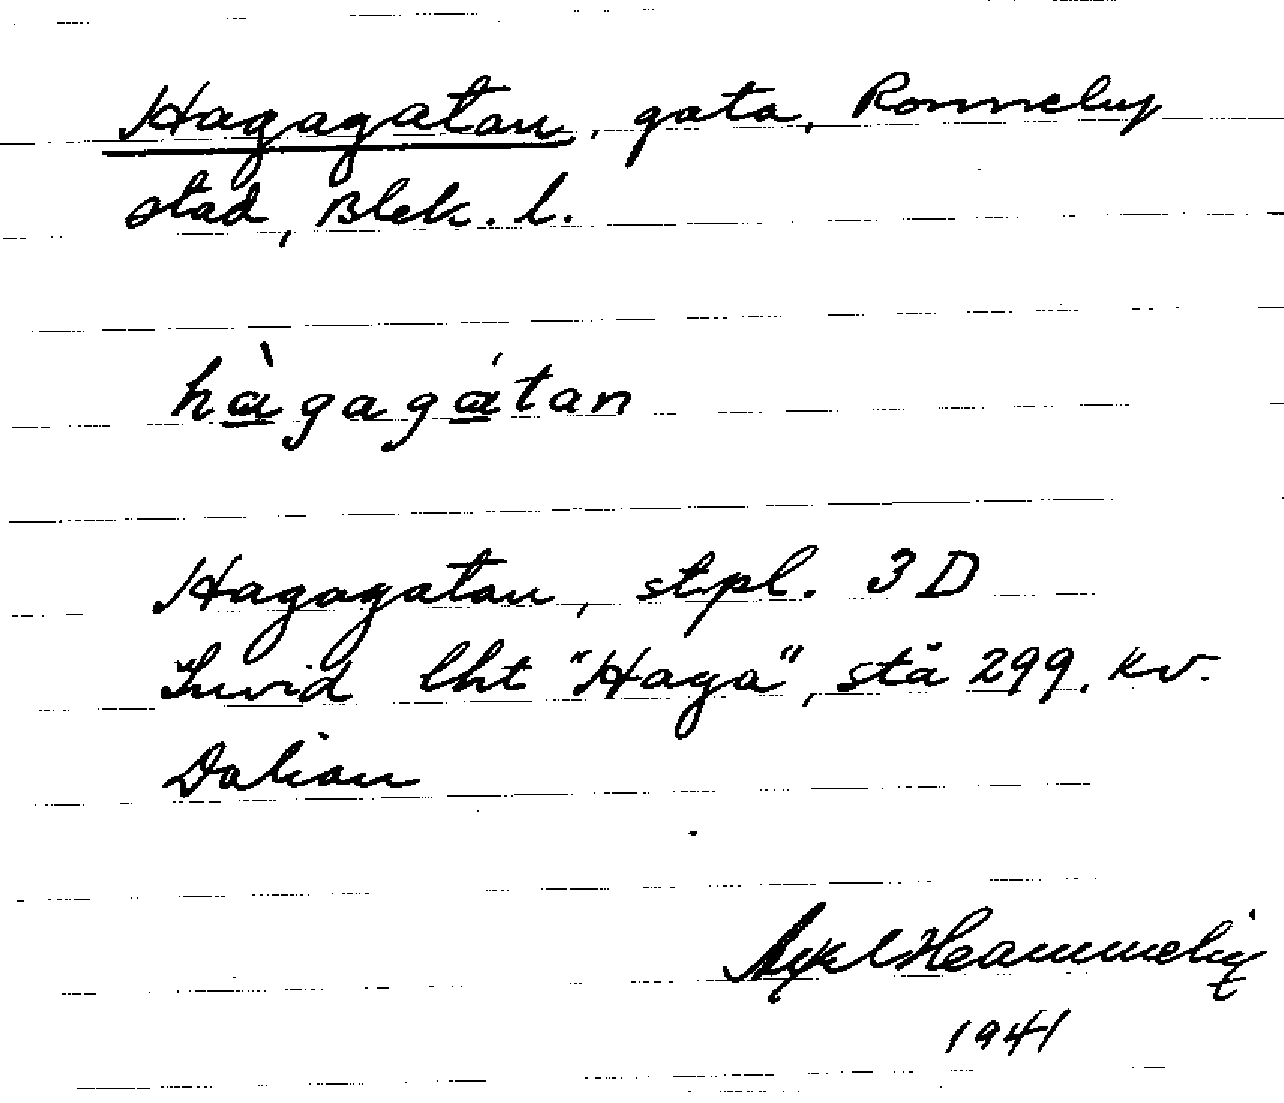 Hagagatan, gata, Ronneby
stad, Blek. l.
hàgagátan
Hagagatan, stpl. 3 D
Invid lht "Haga", stä 299. kv.
Dalian
Axel
1941